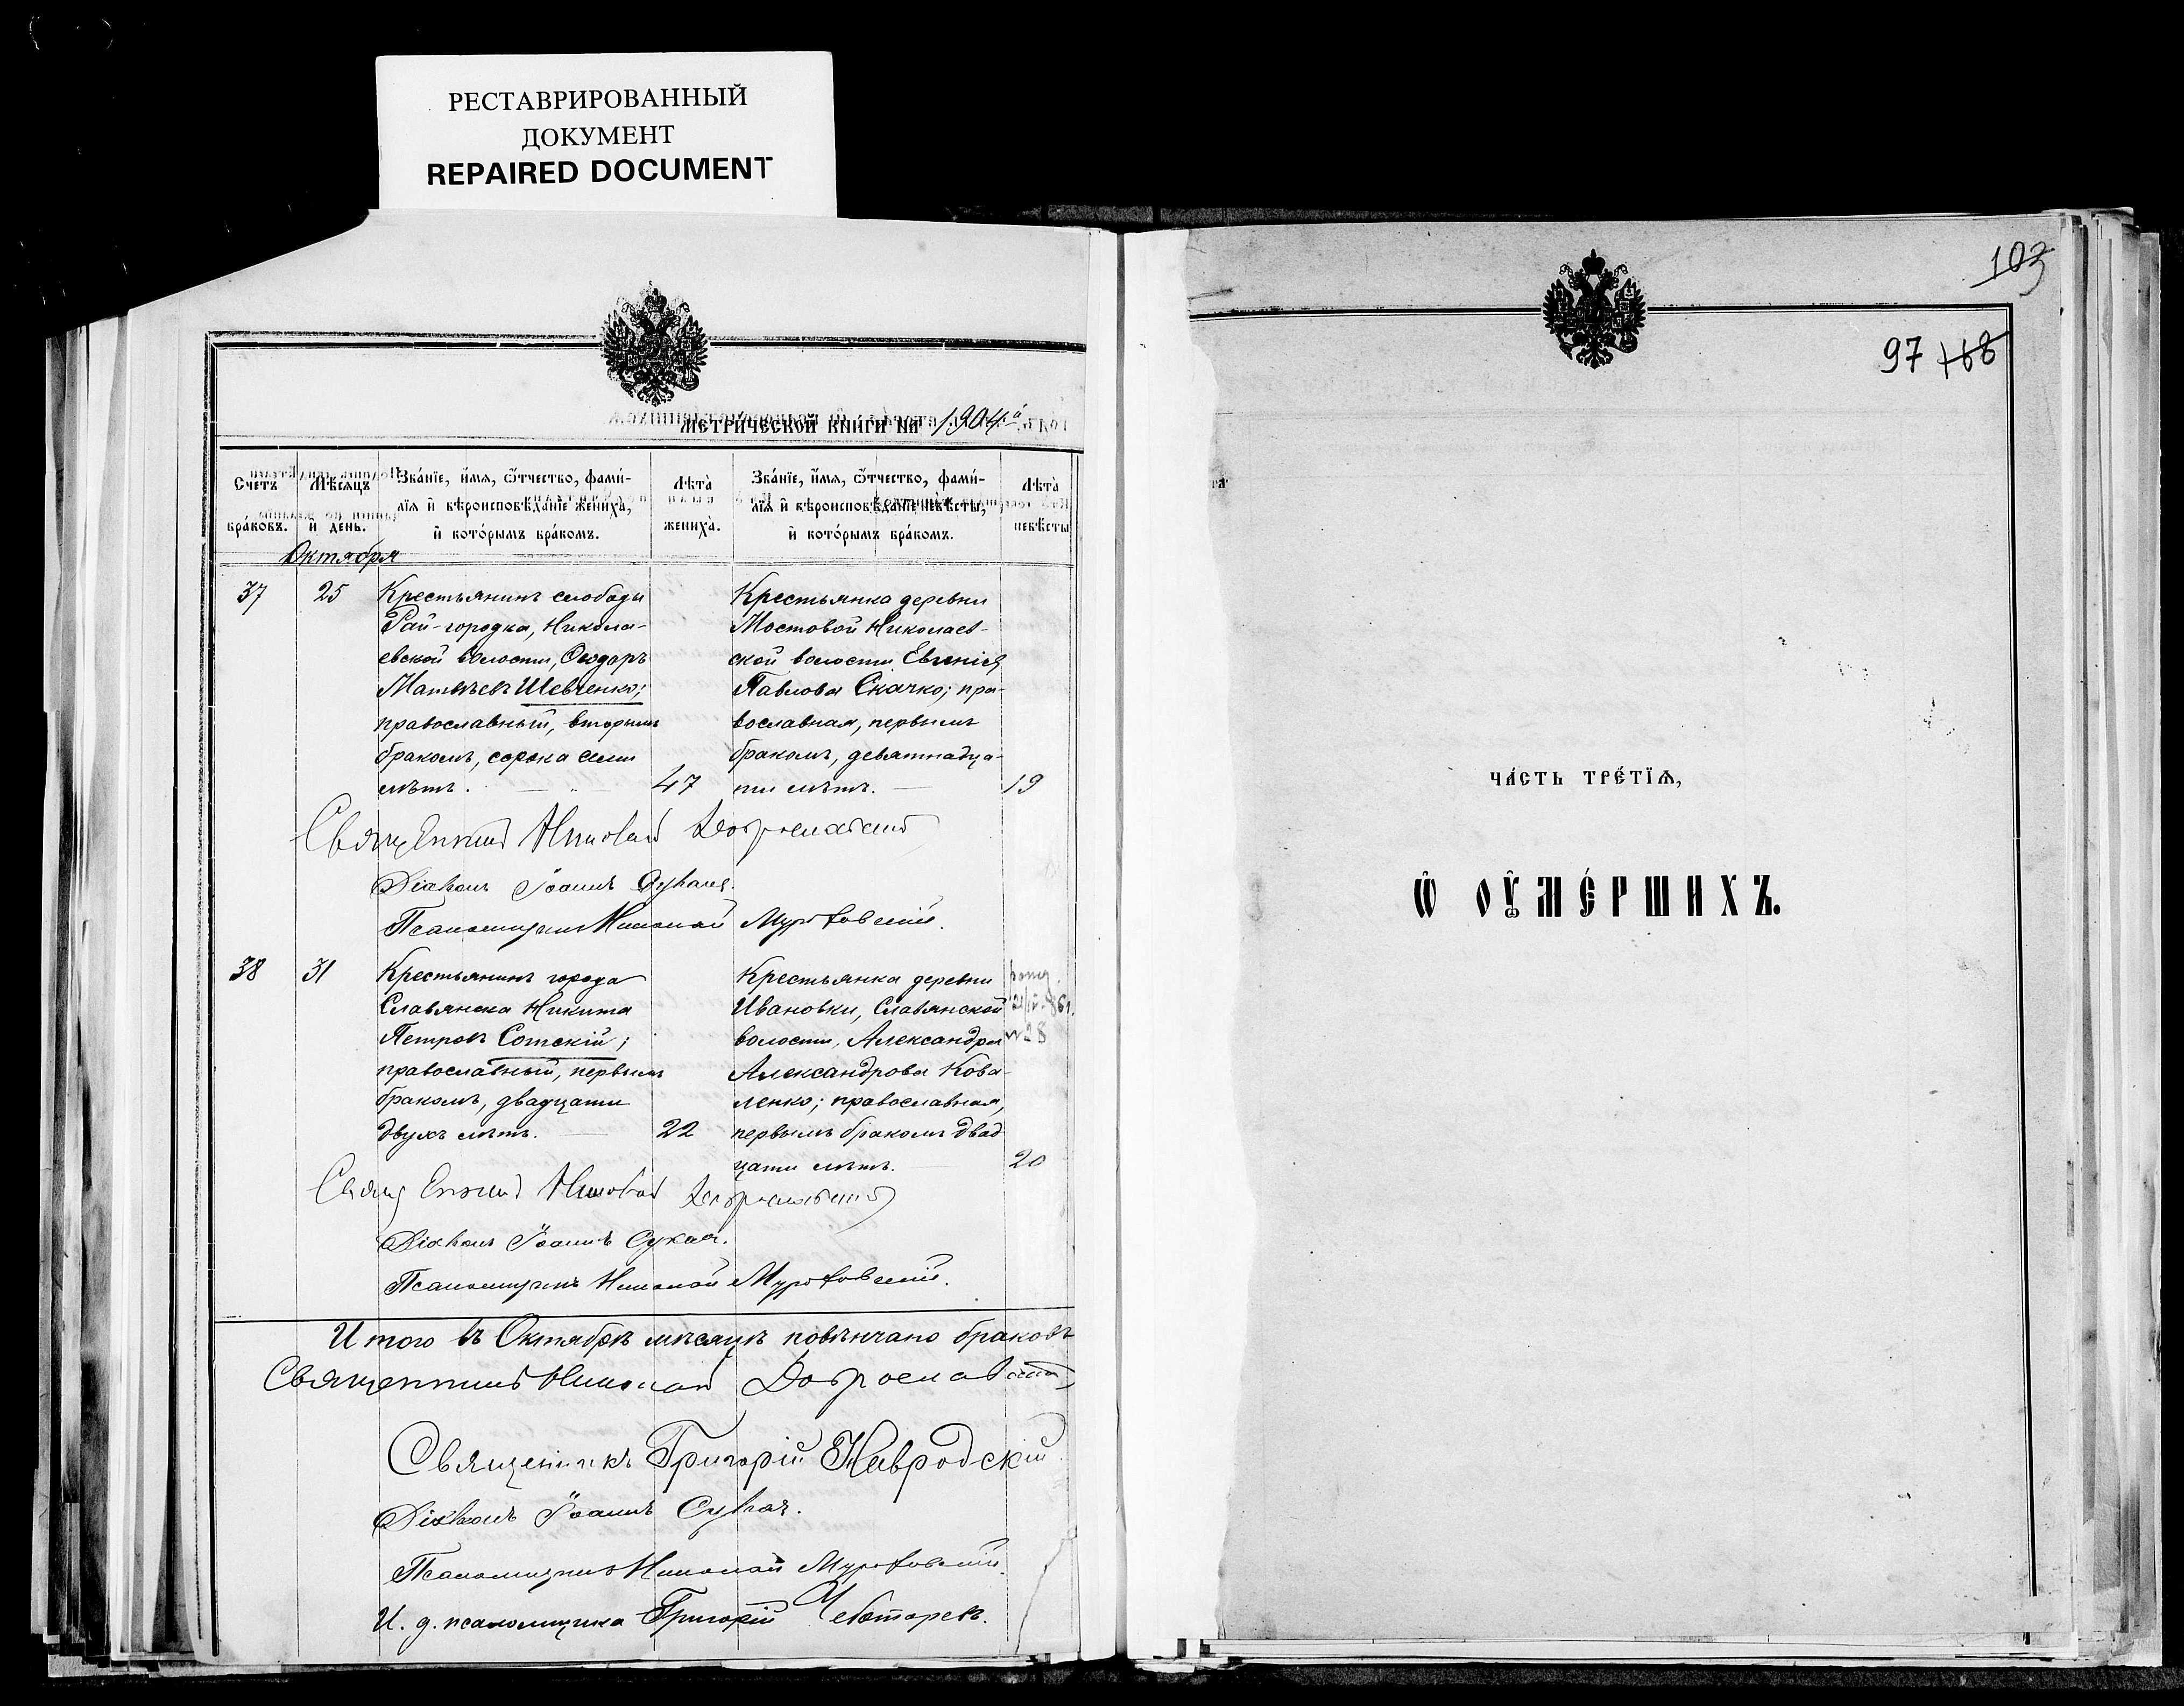 РЕСТАВРИРОВАННЫЙ
ДОКУМЕНТ
REPAIRED DOCUMENT
МЕТРИ́ЧЕСКОЙ КНИ́ГИ НА 1904й
Сче́тъ бра́ковъ.
Мѣ́сяцъ и҆ день.
Зва́нїе, и҆́мѧ, ѻ҆́тчество, фами́-
лїѧ и҆ вѣроисповѣ́данїе жениха̀,
и҆ кото́рымъ бра́комъ.
Лѣта̀
жениха̀.
Зва́нїе, и҆́мѧ, ѻ҆́тчество, фами́-
лїѧ и҆ вѣроисповѣ́данїе невѣ́сты,
и҆ кото́рымъ бра́комъ.
Лѣта̀
невѣ́сты
Октября
37
25
Крестьянинъ слободы
Рай-городка, Никола-
евской волости, Ѳеодоръ
Матвѣевъ Шевченко;
православный, вторымъ
бракомъ, сорока семи
лѣтъ.
47
Крестьянка деревни
Мостовой Николаев-
ской волости Евгенія
Павлова Скачко; пра-
вославная, первымъ
бракомъ, девятнадца-
ти лѣтъ.
19
Священникъ Николай Доброславскій
Діаконъ Іоаннъ Сукачъ.
Псаломщикъ Николай
38
31
Крестьянинъ города
Славянска Никита
Петровъ Сотскій;
православный, первымъ
бракомъ, двадцати
двухъ лѣтъ.
22
Крестьянка деревни
Ивановки, Славянской
волости, Александра
Александрова Кова-
ленко; православная,
первымъ бракомъ двад
цати лѣтъ.
20
№28
Священникъ Николай Доброславскій
Діаконъ Іоаннъ Сукачъ.
Псаломщикъ Николай
Итого въ Октябрѣ мѣсяцѣ повѣнчано браковъ
Священникъ Николай Доброславскій
Священникъ Григорій Навродскій
Діаконъ Іоаннъ Сукачъ.
Псаломщикъ Николай
И. д. псаломщика Григорій Чеботаревъ.
103
97 168
ЧА́СТЬ ТРЕ́ТЇѦ,
Ѡ҆ ОУ҆МЕ́РШИХЪ.